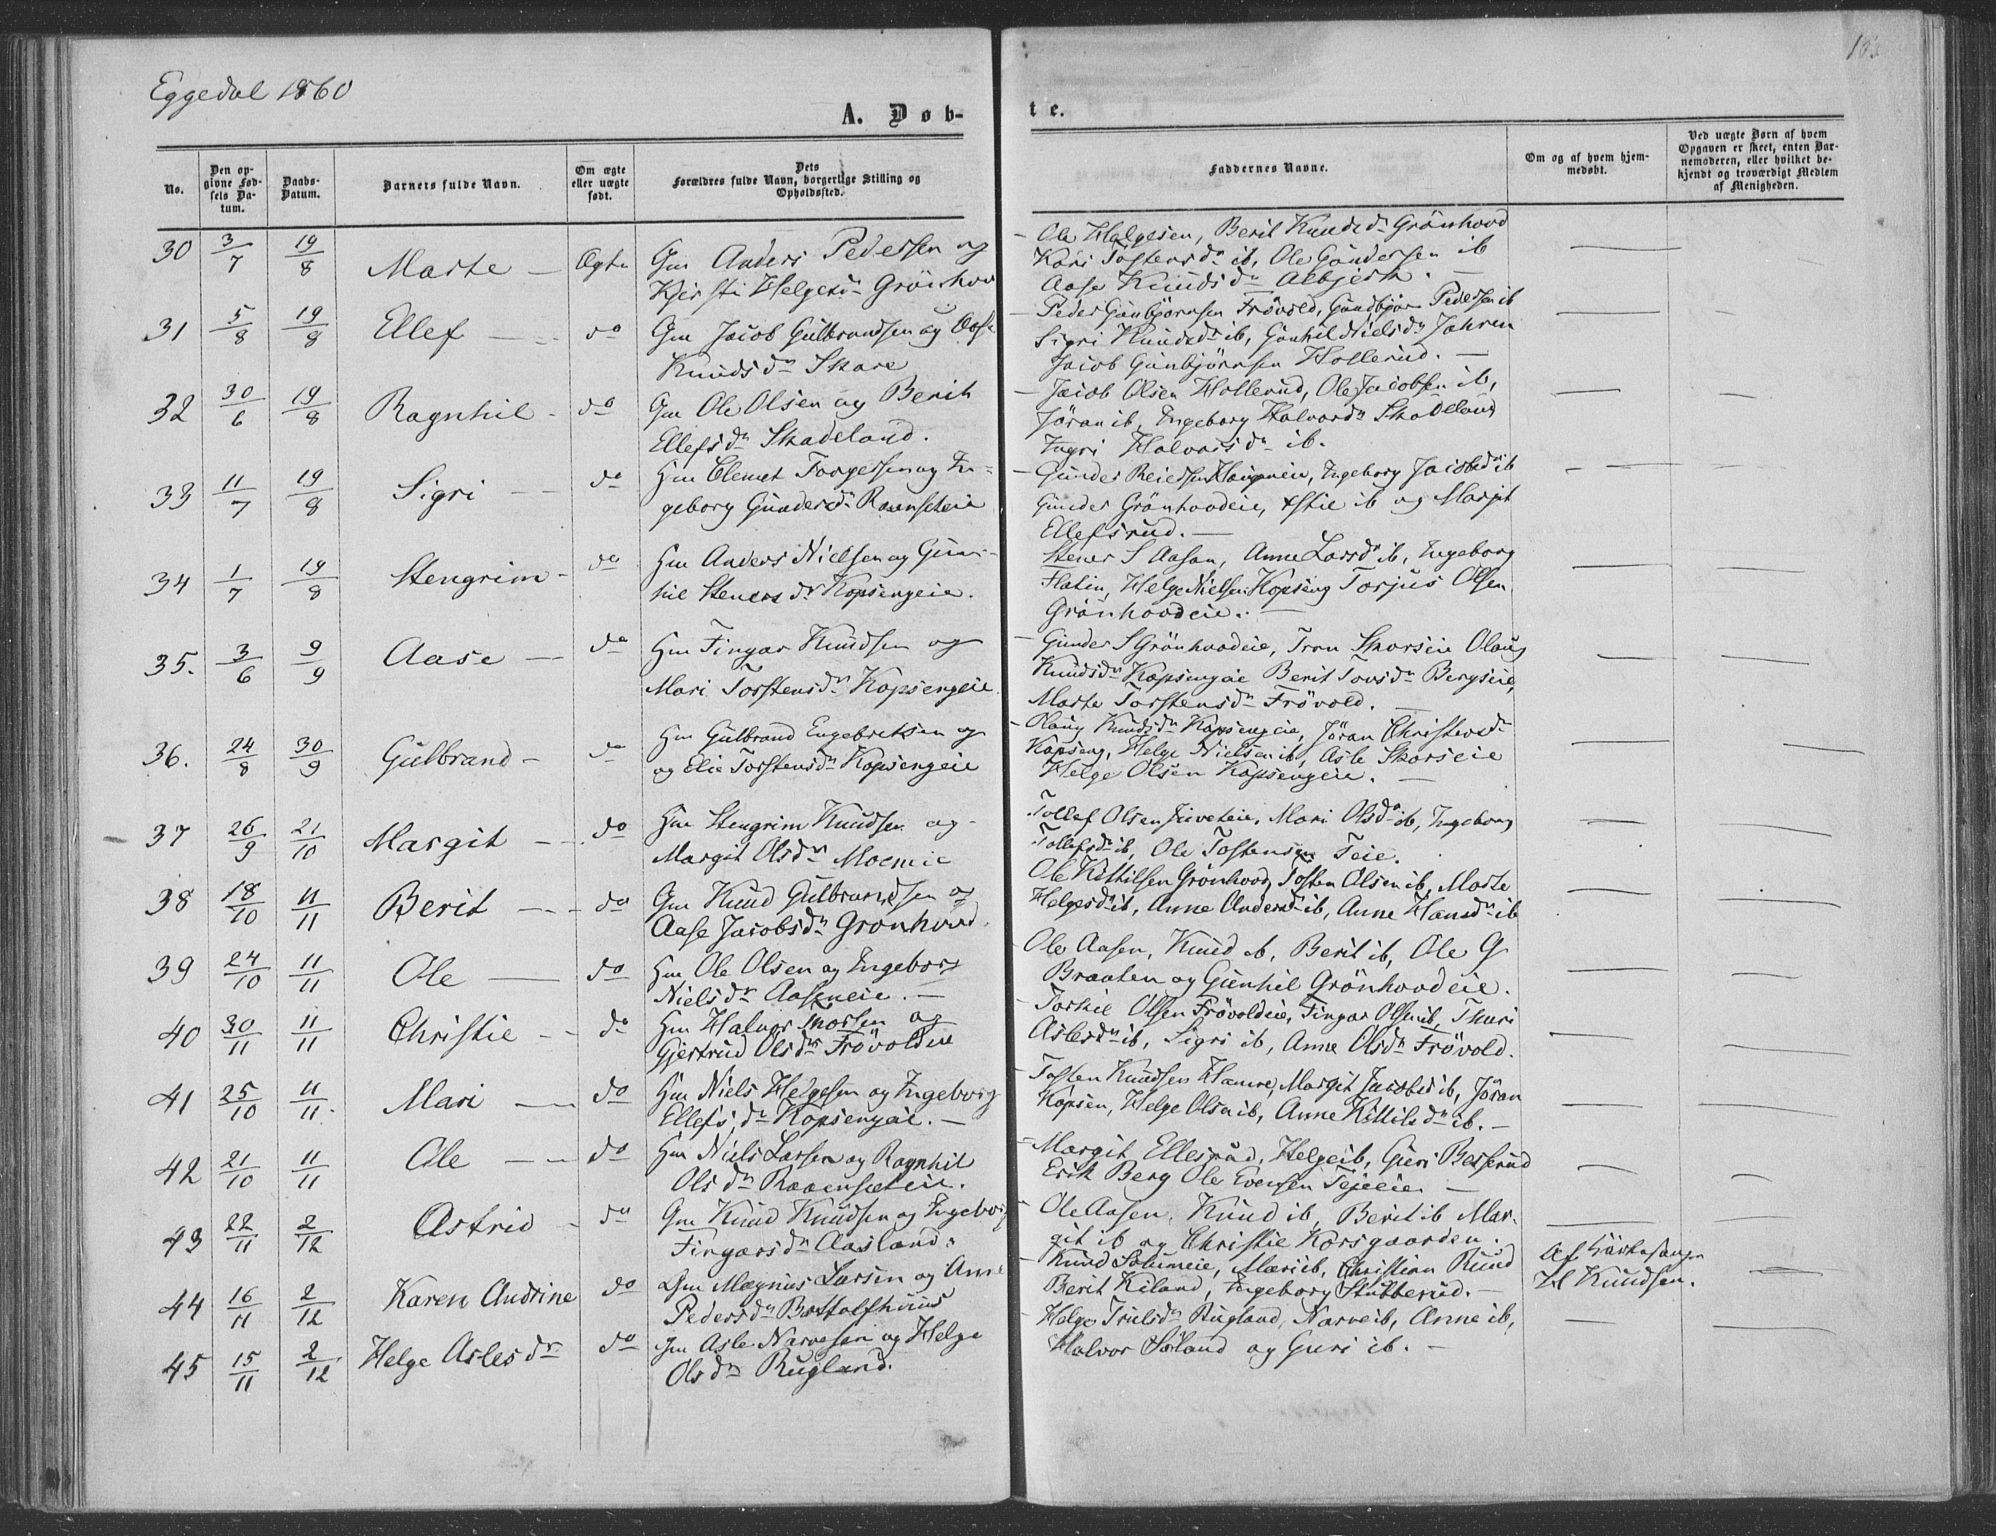 Eggedal 1860
A. Døb-
te.
No.
Den op-
givne Fød-
sels Da-
tum.
Daabs-
Datum.
Barnets fulde Navn.
Om ægte
eller uægte
født.
Dets
Forældres fulde Navn, borgerlige Stilling og
Opholdssted.
Faddernes Navne.
Om og af hvem hjem-
medøbt.
Ved uægte Børn af hvem
Opgaven er skeet, enten Bar-
nemoderen, eller hvilket be-
kjendt og troværdigt Medlem
af Menigheden.
30 3/7 19/8 Marte — Ægte Gm Anders Pedersen og
Kjersti Helgesdr Grönhov
Ole Helgesen, Berit Knudsdr Grönhovd
Kari Tostensdr ib, Ole Gundersen ib
Aase Knudsdr Albjerk. —
31 5/8 19/8 Ellef — do Gm Jacob Gulbrandsen og Aase
Knudsdr Skare
Peder Gunbjørnsen Frövold, Gundbjör Pedersen ib
Sigri Knudsdr ib, Gunhil Nielsdr Jahren
Jacob Gunbjörnsen Hollerud. —
32 30/6 19/8 Ragnhil - do Gm Ole Olsen og Berit
Ellefsdr Skadeland.
Jacob Olsen Hollerud, Ole Jacobsen ib,
Jöran ib, Ingeborg Halvordr Skadeland
Ingri Halvorsdr ib.
33 11/7 19/8 Sigri — do Hm Clemet Torgersen og In-
geborg Gundersdr Ravnseteie
Gunder Reiersen Haugneie, Ingeborg Jacobsd ib
Gunder Grönhovdeie, ib og Margit
Ellefsrud. —
34 1/7 19/8 Stengrim - do Hm Anders Nielsen og Gun-
hil Stenersdr Kopsengeie.
Stener S Aasan, Anne Larsdr ib, Ingeborg
Flatin, Helge Nielsen Kopseng Torjus Olsen
Grönhovdeie. —
35. 3/6 9/9 Aase — do Hm Fingar Knudsen og
Mari Torstensdr Kopsengeie
Gunder S Grönhovdeie, Tron Skorseie Olaug
Knudsdr Kopsengeie Berit Tovsdr Bergseie,
Marte Torstensdr Frövold. —
36. 24/8 30/9 Gulbrand - do Hm Gulbrand Engebretsen og
og Elie Torstensdr Kopsengeie
Olaug Knudsdr Kopsengeie, Jöran Christensdr
Kopseng, Helge Nielsen ib, Asle Skorseie
Helge Olsen Kopsengeie. —
37 26/9 21/10 Margit — do Hm Stengrim Knudsen og-
Margit Olsdr Moemie
Tollef Olsen Juveteie, Mari Olsdr ib, Ingeborg
Tollefsdr ib, Ole Tostensen Teie.
38 18/10 11/11 Berit — do Gm Knud Gulbrandsen og
Aase Jacobsdr Grönhovd.
Ole Kittilsen Grönhovd, Tosten Olsen ib, Marte
Helgesdr ib, Anne Andersdr ib, Anne Hansdr ib
39 24/10 11/11 Ole — do Hm Ole Olsen og Ingeborg
Nielsdr Aasneie. —
Ole Aasen, Knud ib, Berit ib, Ole G
Braaten og Gunhil Grönhovdeie.
40 30/11 11/11 Christie - do Hm Halvor Thorsen og
Gjertrud Olsdr Frövoldeie
Torkil Olsen Frövoldeie, Fingar Olsen ib, Thuri
Aslesdr ib, Sigri ib, Anne Olsdr Frövold.
41 25/10 11/11. Mari — do Hm Niels Helgesen og Ingeborg
Ellefs,dr Kopsengeie. —
Tosten Knudsen Hamre, Margit Jacobsd ib, Jöran
Kopsen, Helge Olsen ib, Anne Kittilsdr ib. —
42 21/10 11/11 Ole — do Hm Niels Larsen og Ragnhil
Olsdr Ravnseteie.
Margit Ellesrud, Helge ib, Guri Besserud
Erik Berg Ole Evensen Tejeeie —
43 22/11 2/12 Astrid - do Gm Knud Knudsen og Ingeborg
Fingarsdr Aasland.
Ole Aasen, Knud ib, Berit ib Mar-
git ib og Christie Korsgaarden.
44 16/11 2/12 Karen Andrine do Gm Magnus Larsen og Anne
Pedersdr Bottolfshuus
Knud Solumeie, Mari ib, Christian Ruud
Berit Kiland, Ingeborg Stutterud. —
Af Kirkesanger
H Knudsen.
45 15/11 2/12 Helge Aslesdr do Gm Asle Narvesen og Helge
Olsdr Rugland.
Helge Trulsdr Rugland, Narve ib, Anne ib,
Halvor Söland og Guri ib. —